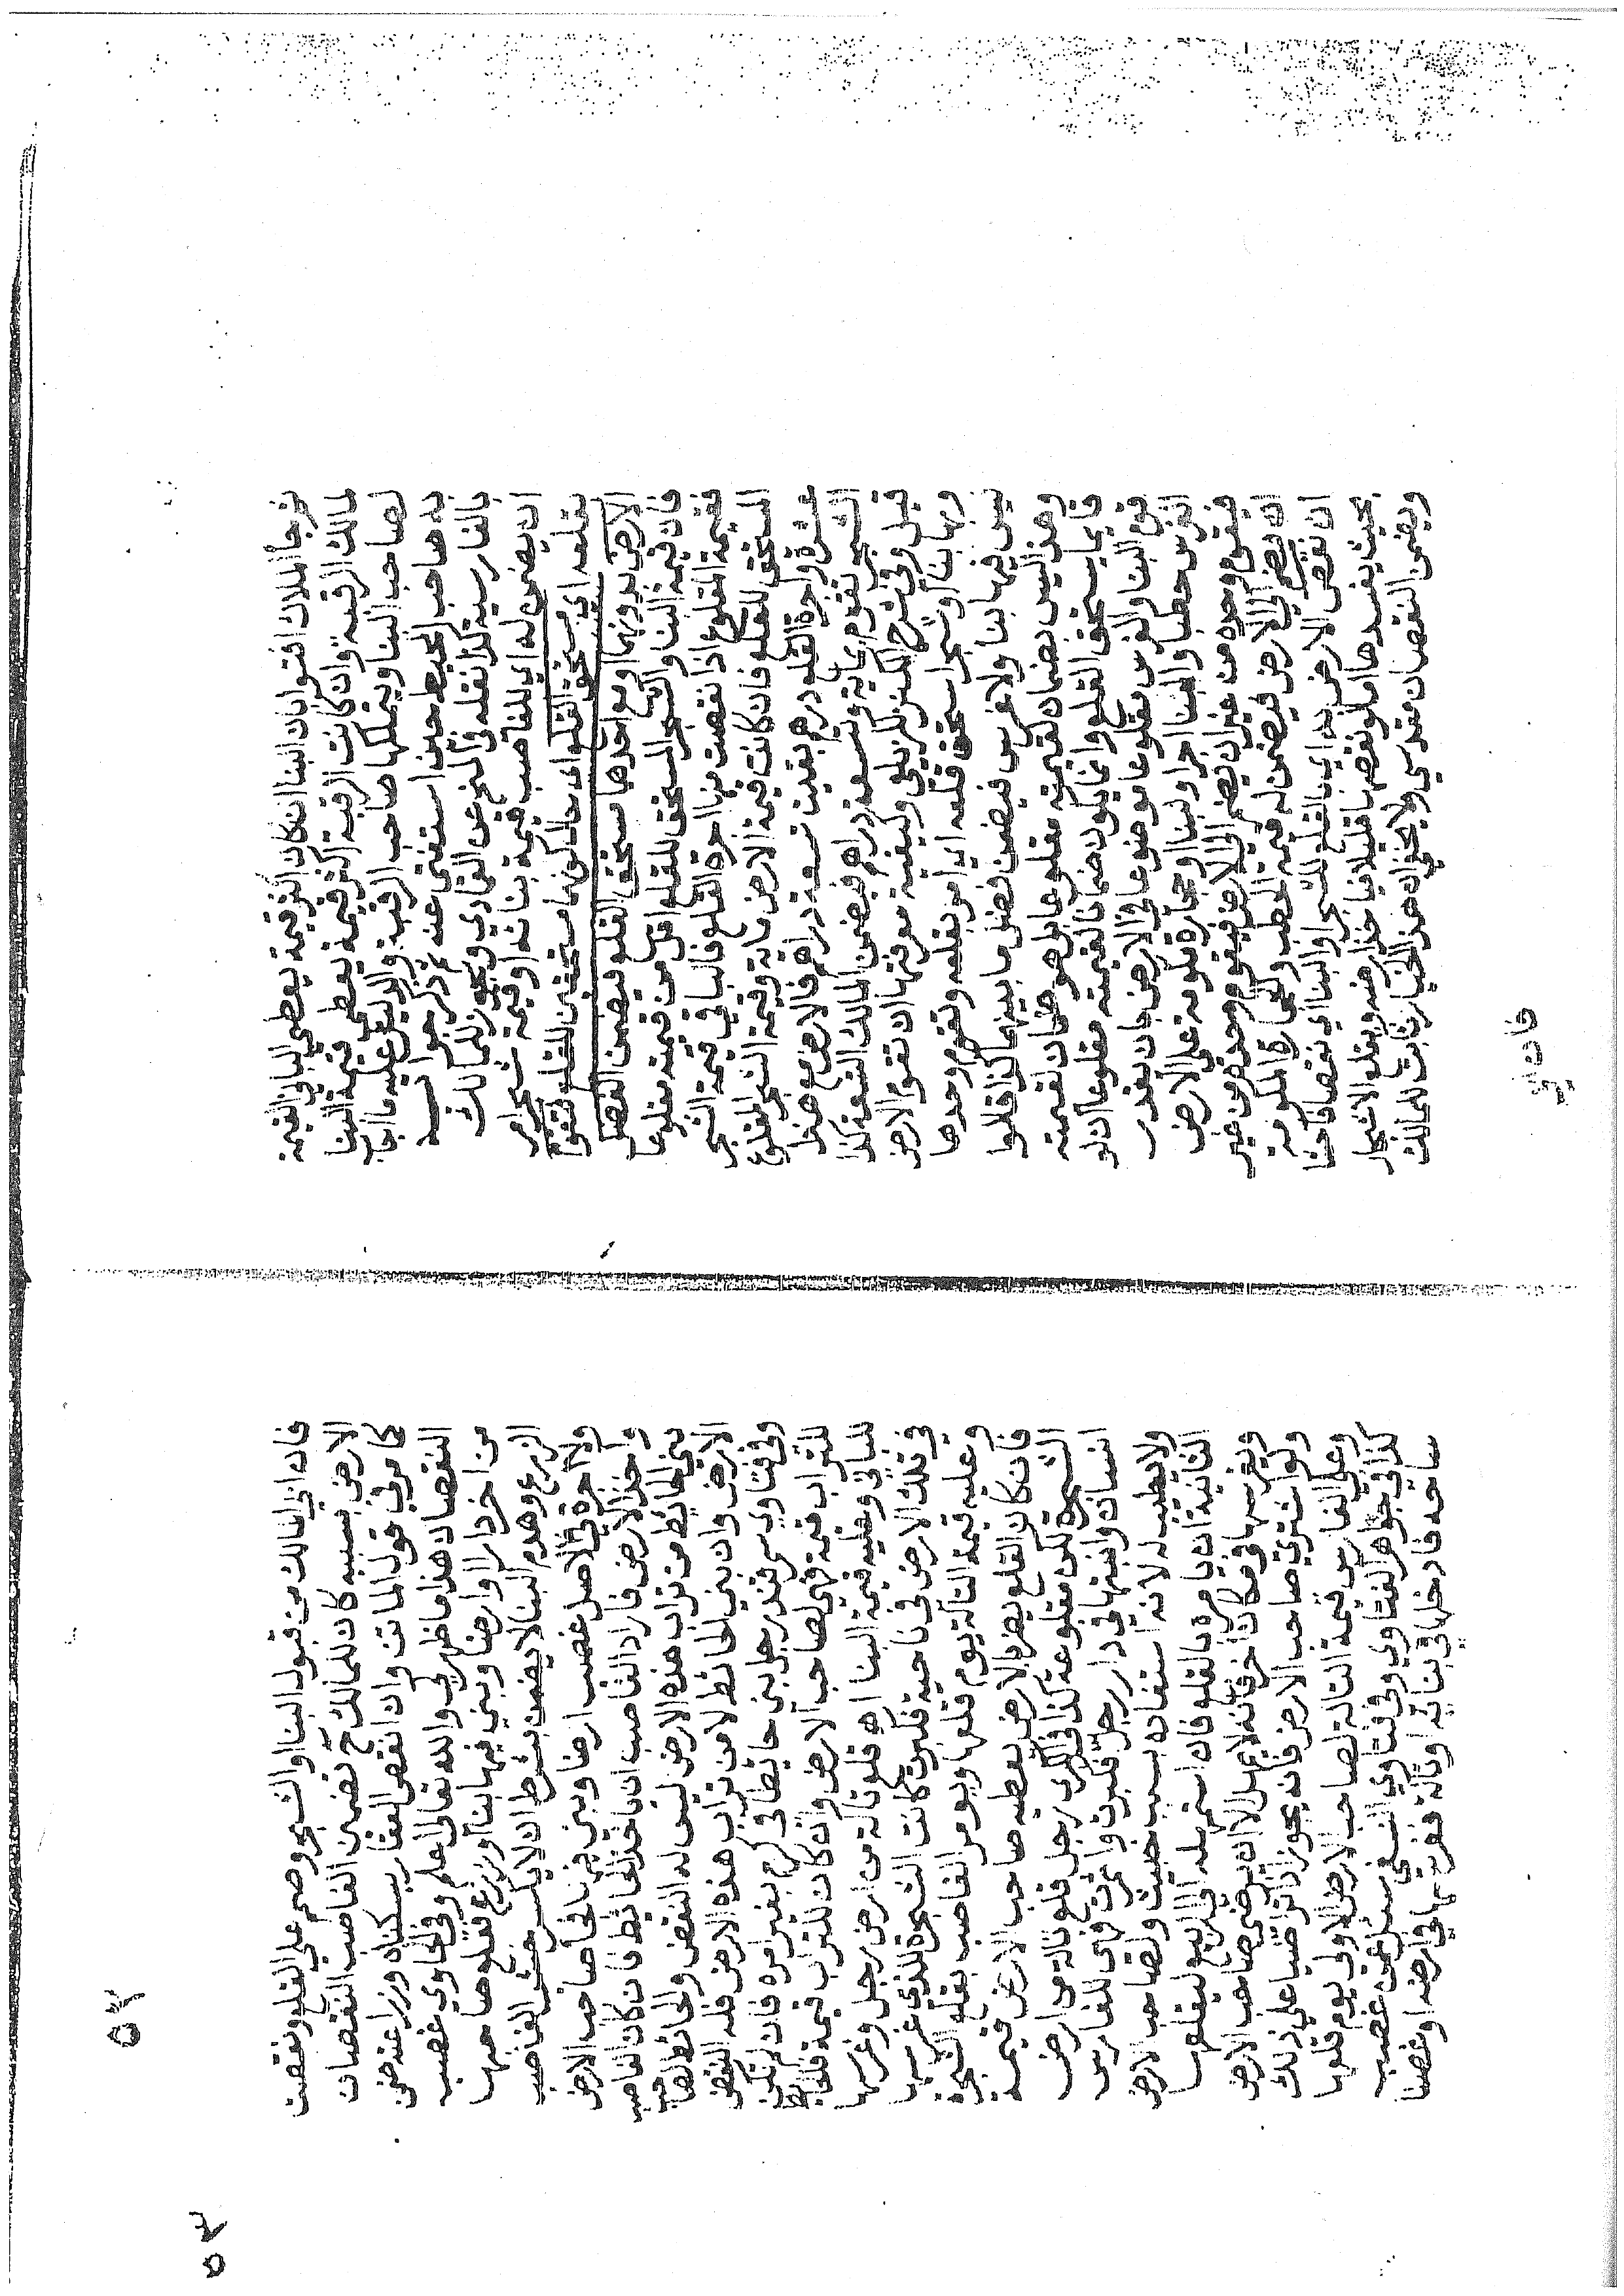 فرجا الملاك افتوا بان البنا ان كان اكثر قيمة يعطي الباني القيمة
لمالك الرقبة وان كانت الرقبة اكثر قيمة يعطى قيمة البنا
لصاحب البنا ويتملكها صاحب الرقبة والاليق عليه ما اجاب
به صاحب المحيط حين استفتى عنه ثم ذكر جوابه
بالفارسية كذا نقله في المنح عن العمادي ويجوز للمالك
ان يضمن له اي للغاصب قيمة بنائه او قيمة شجر امر
بقلعه اي مستحق القلع اي حال كونهما مستحقين للقلع فتقوم
الارض بدونهما ومع احدهما مستحق القلع فيضمن الفضل
فان قيمة البنا والشجر المستحق للقلع اقل من قيمته مقلوعا
فقيمة المقلوع اذا نقصت منها اجرة القلع فالباقي قيمة الشجر
المستحق للقلع فان كانت قيمة الارض مائة وقيمة الشجر المقلوع
عشرة واجرة القلع درهم بقيت تسعة دراهم فالارض مع هذا
الشجر تقوم بماية وتسعة دراهم فيضمن المالك التسعة كذا
قيل وفي شرح الكنز للزيلعي وكيفية معرفتها ان تقوم الارض
وبها بنا او شجر استحق قلعه اي امر بقلعه وتقوم وحدها
ليس فيها بنا ولا غرس فيضمن فضل ما بينهما كذا قالوا
وهذا ليس بضمان لقيمته مقلوعا بل هو ضمان لقيمته
قايما يستحق القلع وانما يكون ضمانا لقيمته مقلوعا ان لو
قوم البنا والغرس مقلوعا موضوعا في الارض بان يقدر
الغرس حطبا والبنا اجرا ولبنا او حجارة مكومة على الارض
فيقوم وحده من غير ان يضم الى الارض فيقوم وحده من غير
ان يضم الى الارض فيضمن له قيمة الحطب والحجارة المكومة
ان نقص الارض به اي بالقلع للشجر والبنا اي نقصانا فاحشا
بحيث يفسدها اما لو نقصها قليلا فياخذ ارضه ويقلع الاشجار
ويضمن النقصان مقدسي ولا يخفى ان هذا الخيار ثابت للمالك
فان ابى
فان ابى المالك من قبول البنا والشجر وصمم على القلع ونقصت
الارض بسببه كان للمالك ح تضمين الغاصب النقصان
كما مر في قول الماتن وان نقص العقار بسكناه وزراعته ضمن
النقصان هذا ما ظهر لي والله تعالى اعلم وفي الحاوي غصب
من اخر دارا او ارضا وبنى فيها بنا او زرع فقلع صاحبها
الزرع وهدم البنا لا يضمن بشرط ان لا يكسر خشب الغاصب
ولا اجرة في الاصل غصب ارضا وبنى فيها فجا صاحب الارض
واخذ الارض فاراد الغاصب ان ياخذ الحائط فان كان الغاصب
بنى الحائط من تراب هذه الارض ليس له النقض والحائط لصاحب
الارض وان بنى الحائط لا من تراب هذه الارض فله النقض
وفي فتاوي سمرقند رجل بنى حائطا في كرم بغير امره فان لم يكن
للتراب قيمة فهي لصاحب الارض وان كان للتراب قيمة فالحائط
للباني وعليه قيمة البنا اهـ قلع تالة من ارض رجل وغرسها
في تلك الارض في ناحية فكبرت كانت الشجرة للذي غرسها
وعليه قيمة التالة يوم قلعها ويومر الغاصب بقلع الشجرة
فان كان القلع يضر بالارض يعطيه صاحب الارض قيمة
الشجرة لكن مقلوعة كذا في الكبرى رجل قلع تالة من ارض
انسان وانبتها في دار رجل فكبرت واثمرت فهي للغارس
ولا يطيب له لانه استفاده بسبب خبيث ولصاحب الارض
الثانية ان يامره بالقلع فان استمهله الى الربيع ليقلعها
ويغرسها في مكان اخر فانه لا يمهل الا ان يرضى صاحب الارض
ولو اشترى صاحب الارض فانه يجوز اذا تراضيا على ذلك
وعلى الغارس قيمة التالة لصاحب الارض الاولى يوم قلعها
كذا في جواهر الفتاوي وفي فتاوي النسفي سئل عمن غصب
ساحة فادخلها في بنائه او تالة فغرسها في ارضه او غصنا
٥٤
٥٤